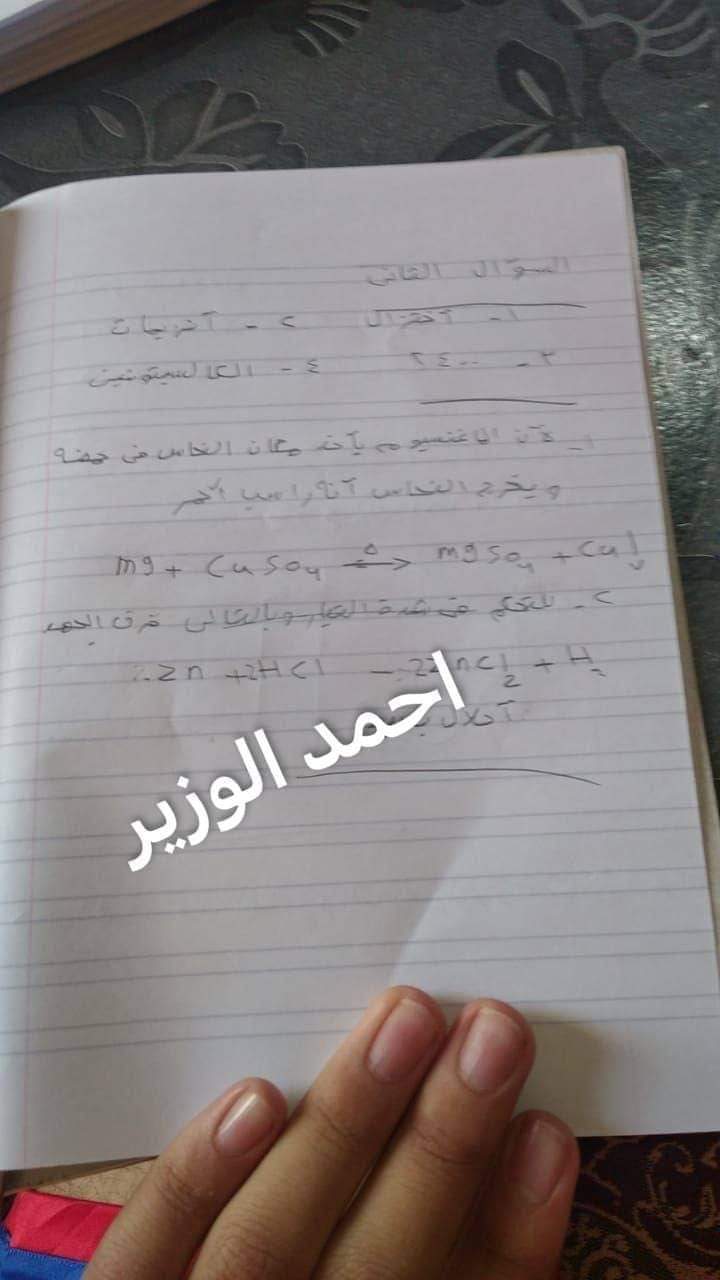 السؤال الثانى
١- آختزال ٢- آنزيمات
٣- ٢٤٠٠ ٤- الكالسيتونين
١- لآن الماغنسيوم يآخذ مكان النحاس فى
و يخرج النحاس آنه راسب آحمر
mg + CuSO4 Δ→ mgSO4 + Cu↓
٢- للتحكم فى شدة التيار وبالتالى فرق الجهد
Zn + 2HCl → ZnCl2 + H2
آحلال
احمد الوزير